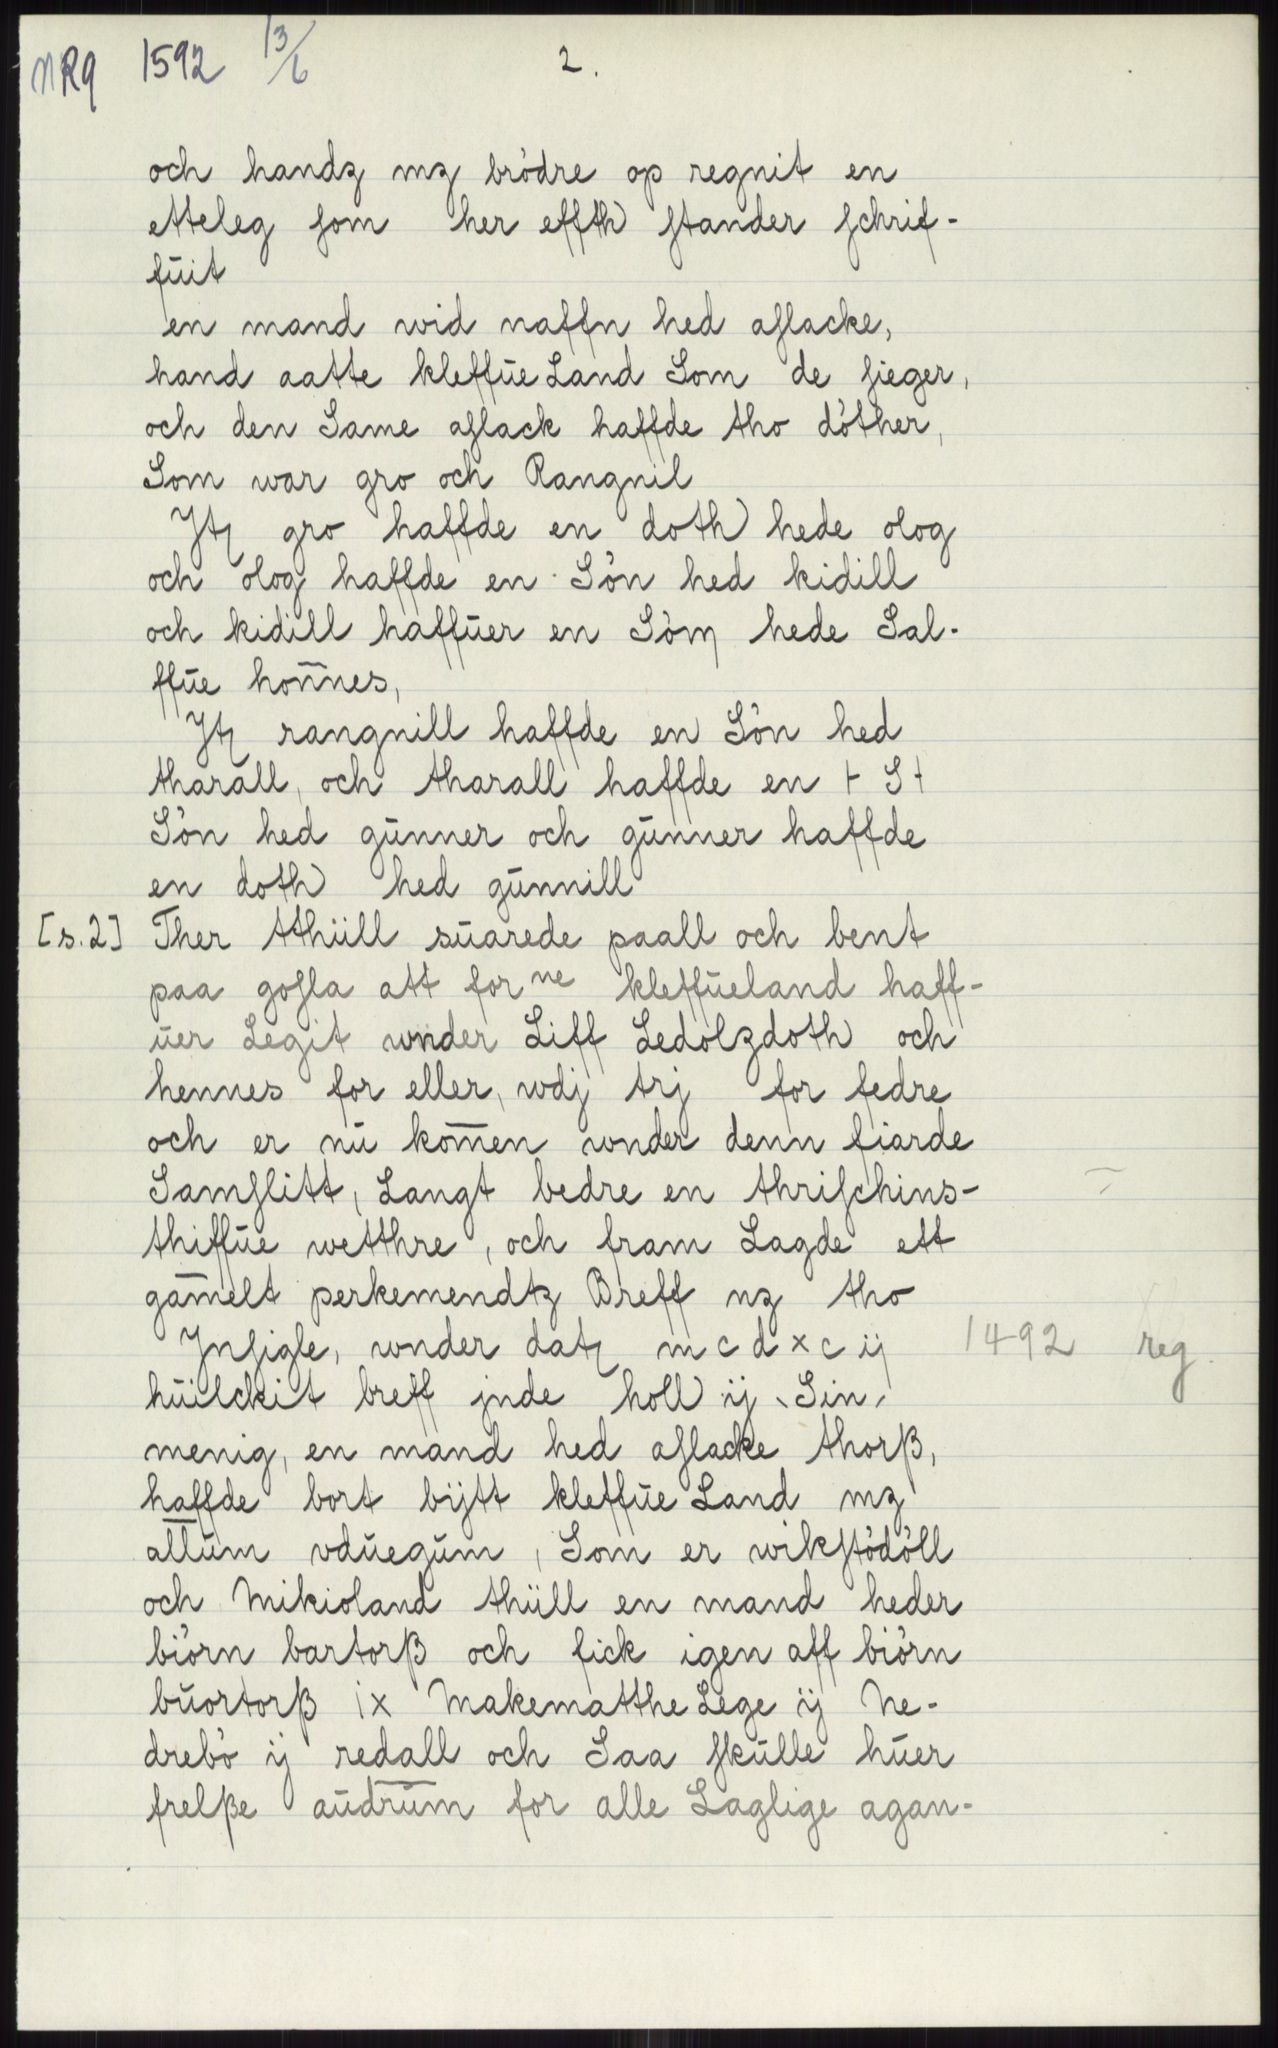 NRq 1592 13/6 2.
och handz mz brödre op regnit en
etteleg som her effth stander schrif-
fuit
en mand wid naffn hed aslacke,
hand aatte kleffue Land Som de sieger,
och den Same aslack haffde tho döther,
Som war gro och Rangnil
Jtz gro haffde en doth hede olog
och olog haffde en Sön hed kidill
och kidill haffuer en Söm hede Sal-
ffue hon̄nes,
Jtz rangnill haffde en Sön hed
tharall, och tharall haffde en + S +
Sön hed gunner och gunner haffde
en doth hed gunnill
[s. 2] Ther tthiill suarede paall och bent
paa gosla att for ne kleffueland haff-
uer Legit wnder Liff Ledolzdoth och
hennes for eller, wdj trj for fedre
och er nu kom̄en wnder denn fiarde
Samslitt, Langt bedre en thrischins-
thiffue wetthre, och fram Lagde ett
gam̄elt perkemendtz Breff mz tho
Jnsigle, wnder datz m c d x c ij 1492 reg.
huilckit breff jnde holl ij Sin,
menig, en mand hed aslacke thorß,
haffde bort bijtt kleffue Land mz
allum vduegum, Som er wikstödöll
och Mikioland thiill en mand heder
biörn bartorß och fick igen aff biörn
buortorß ix Makematthe Lege ij Ne-
drebö ij redall och Saa skulle huer
frelße audrum for alle Laglige agan-